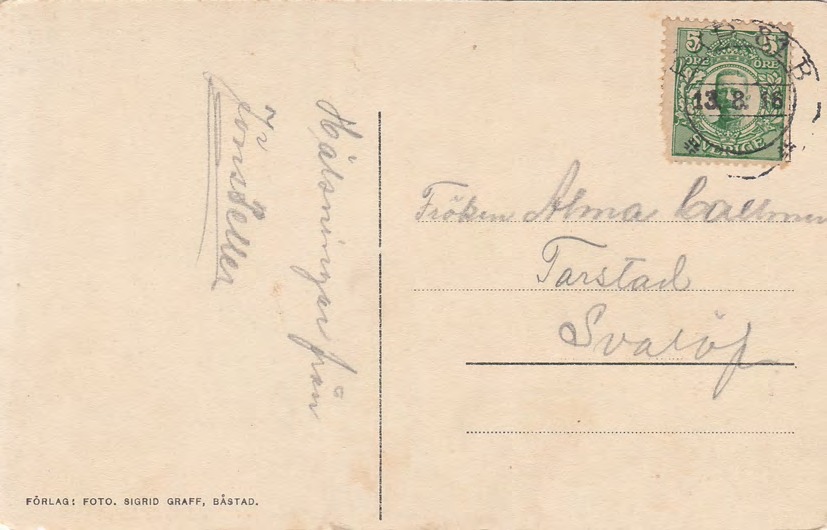 Hälsningar från
5 5
ÖRE ÖRE
SVERIGE
13. 8. 16
Fröken Alma
Tarstad
Svalöf
FÖRLAG: FOTO. SIGRID GRAFF, BÅSTAD.